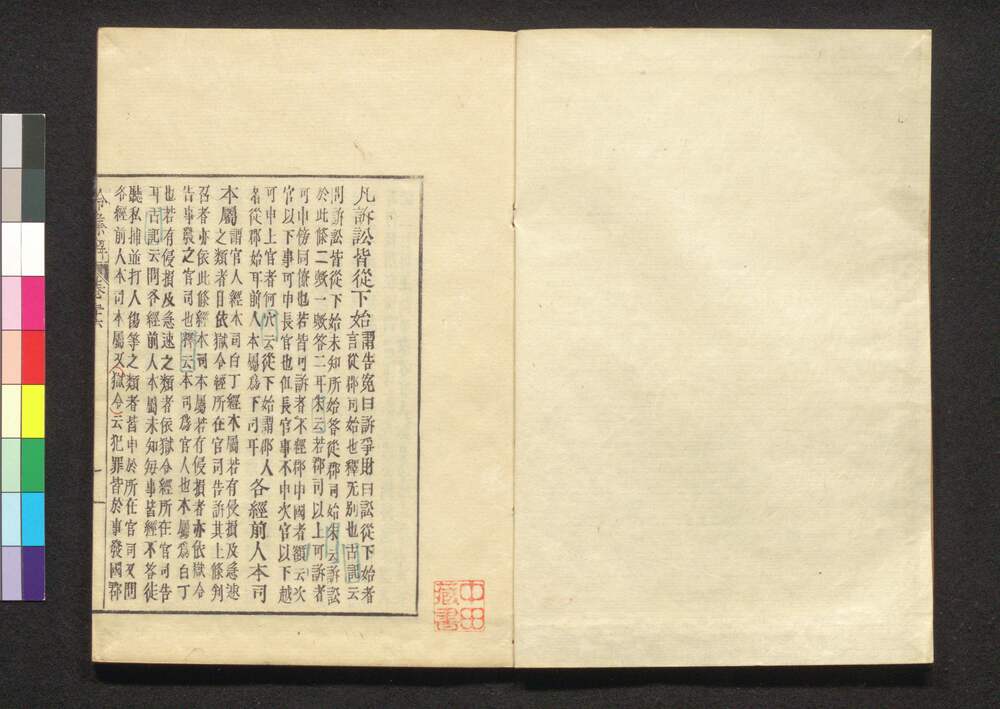 凡訴訟皆從下始謂告冤曰訴爭財曰訟從下始者
言從郡司始也釋无別也古記云
問訴訟皆從下始未知所始答從郡司始朱云訴訟
於此條二歟一歟答二耳朱云若郡司以上可訴者
可申傍同僚也若皆可訴者不經郡申國者額云次
官以下事可申長官也但長官事不申次官以下越
可申上官者何穴云從下始謂郡人
名從郡始耳前人本屬爲下司耳
各經前人本司
本屬謂官人經本司白丁經本屬若有侵損及急速
之類者自依獄令經所在官司告訴其上條判
召者亦依此條經本司本屬若有侵損者亦依獄令
告事發之官司也釋云本司爲官人也本屬爲白丁
也若有侵損及急速之類者依獄令經所在官司告
耳古記云問各經前人本屬未知每事皆經不答徒
聽私捕並打人傷等之類者皆申於所在官司又問
各經前人本司本屬又獄令云犯罪皆於事發國郡
令集解
中田
藏書